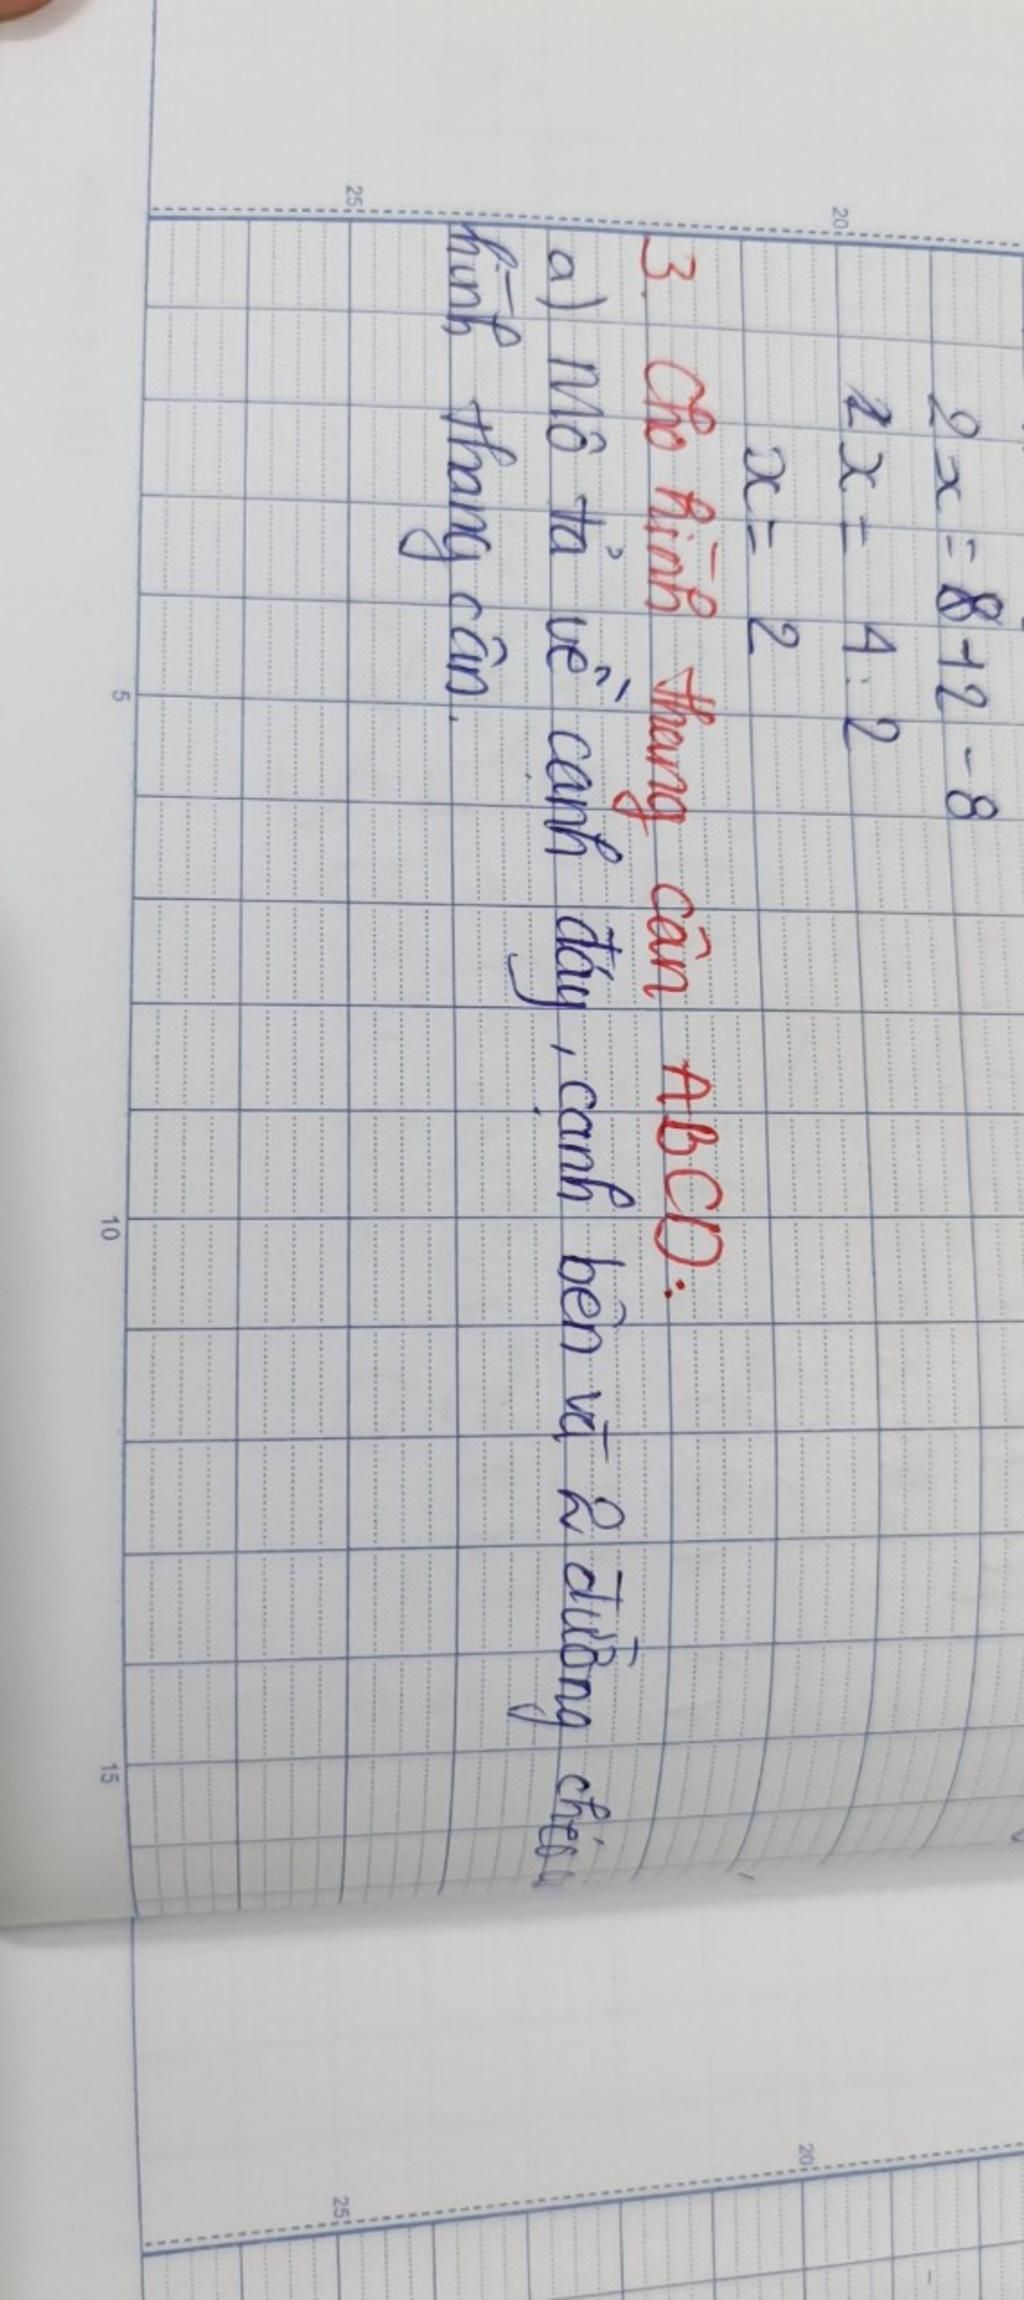 2x = 8 + 2 - 8
2x = 4 : 2
x = 2
3. Cho hình thang cân ABCD:
a) Mô tả về cạnh đáy, cạnh bên và 2 đường chéo
hình thang cân.
20
25
5
10
15
20
25